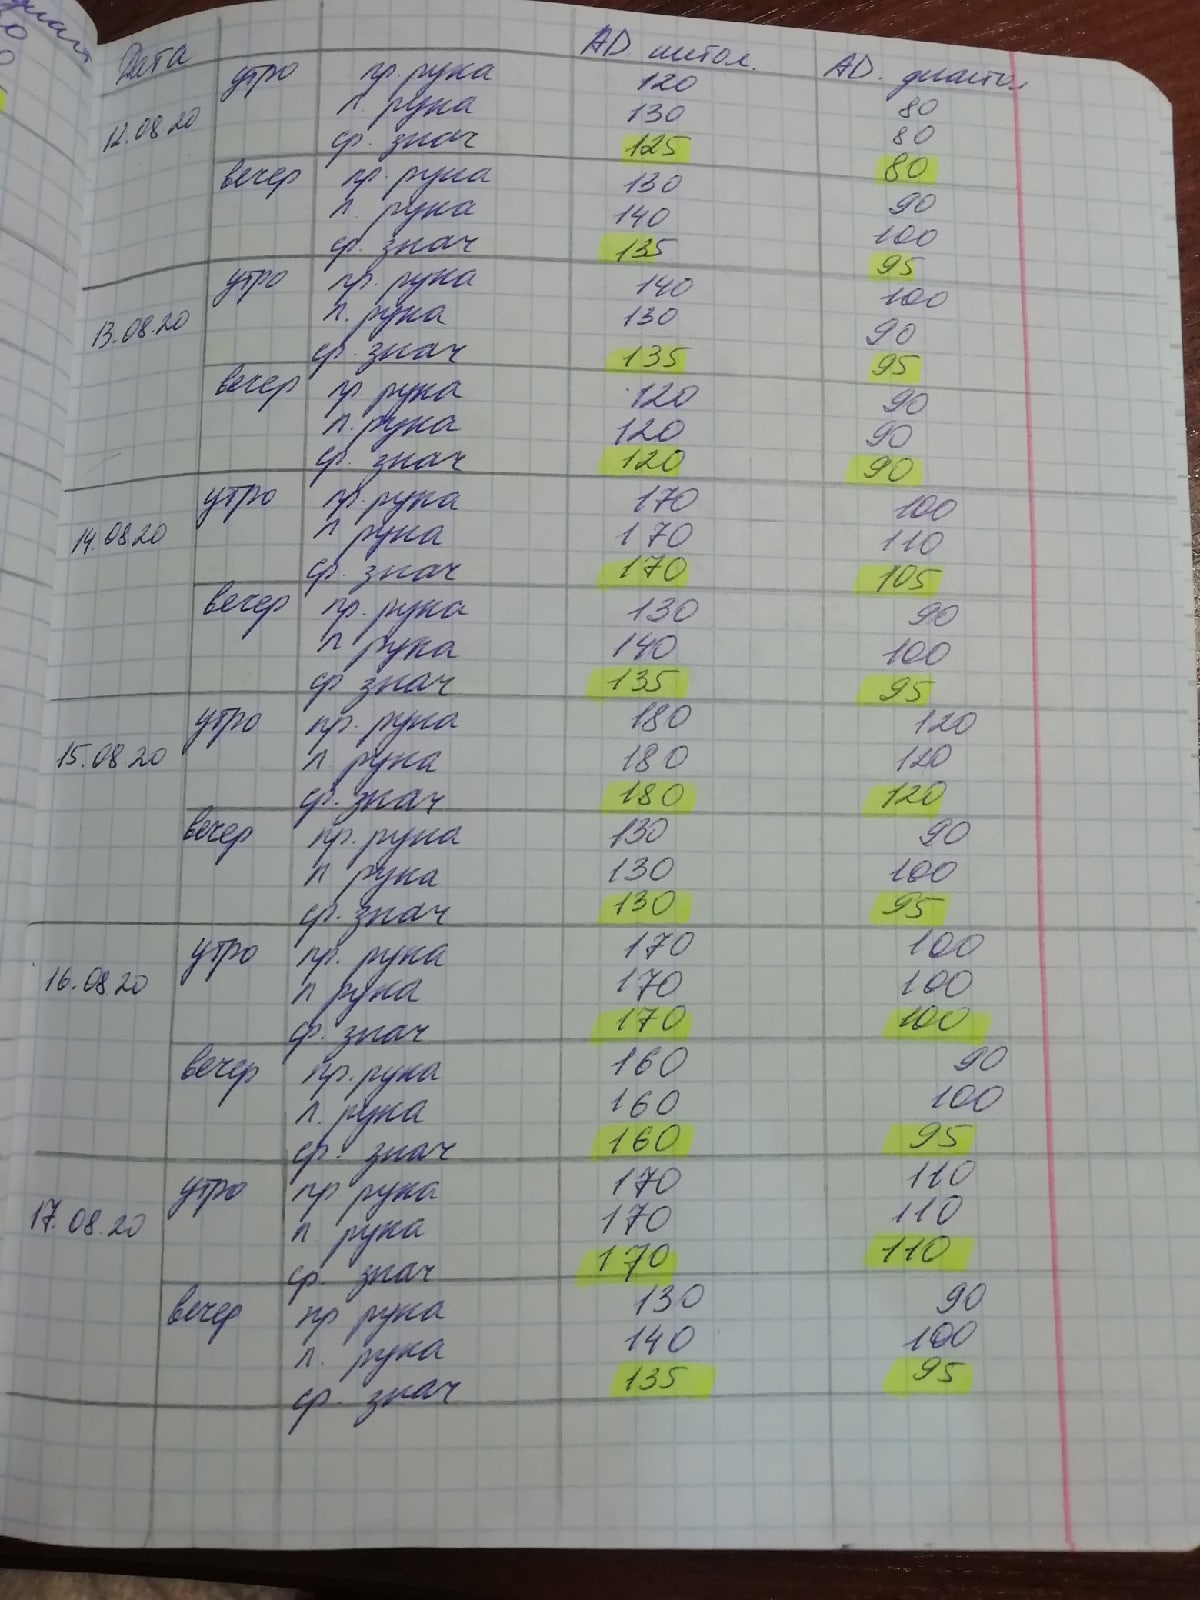 Дата АД систол. АД. диастол
12.08 20 утро пр. рука 120 80
л. рука 130 80
ср. знач 125 80
вечер пр. рука 130 90
л. рука 140 100
ср. знач 135 95
13.08.20 утро пр. рука 140 100
л. рука 130 90
ср. знач 135 95
вечер пр рука 120 90
л. рука 120 90
ср. знач 120 90
14.08 20 утро пр. рука 170 100
л рука 170 110
ср. знач 170 105
вечер пр. рука 130 90
л рука 140 100
ср знач 135 95
15.08 20 утро пр. рука 180 120
л. рука 180 120
ср. знач 180 120
вечер пр. рука 130 90
л рука 130 100
ср. знач 130 95
16.08 20 утро пр. рука 170 100
л рука 170 100
ср. знач 170 100
вечер пр. рука 160 90
л. рука 160 100
ср. знач 160 95
17.08.20 утро пр рука 170 110
л. рука 170 110
ср. знач 170 110
вечер пр рука 130 90
л. рука 140 100
ср. знач 135 95